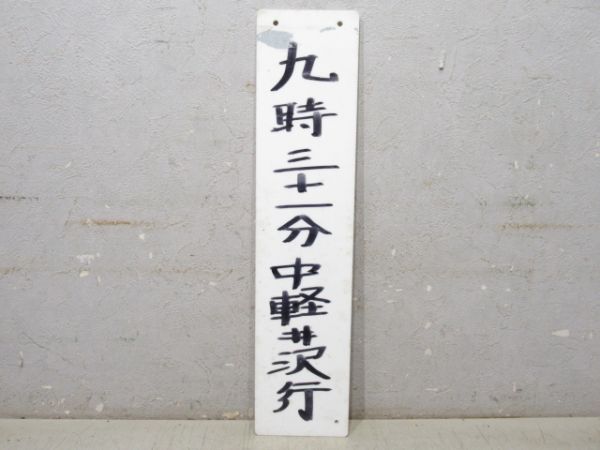 九時三十一分中軽井沢行